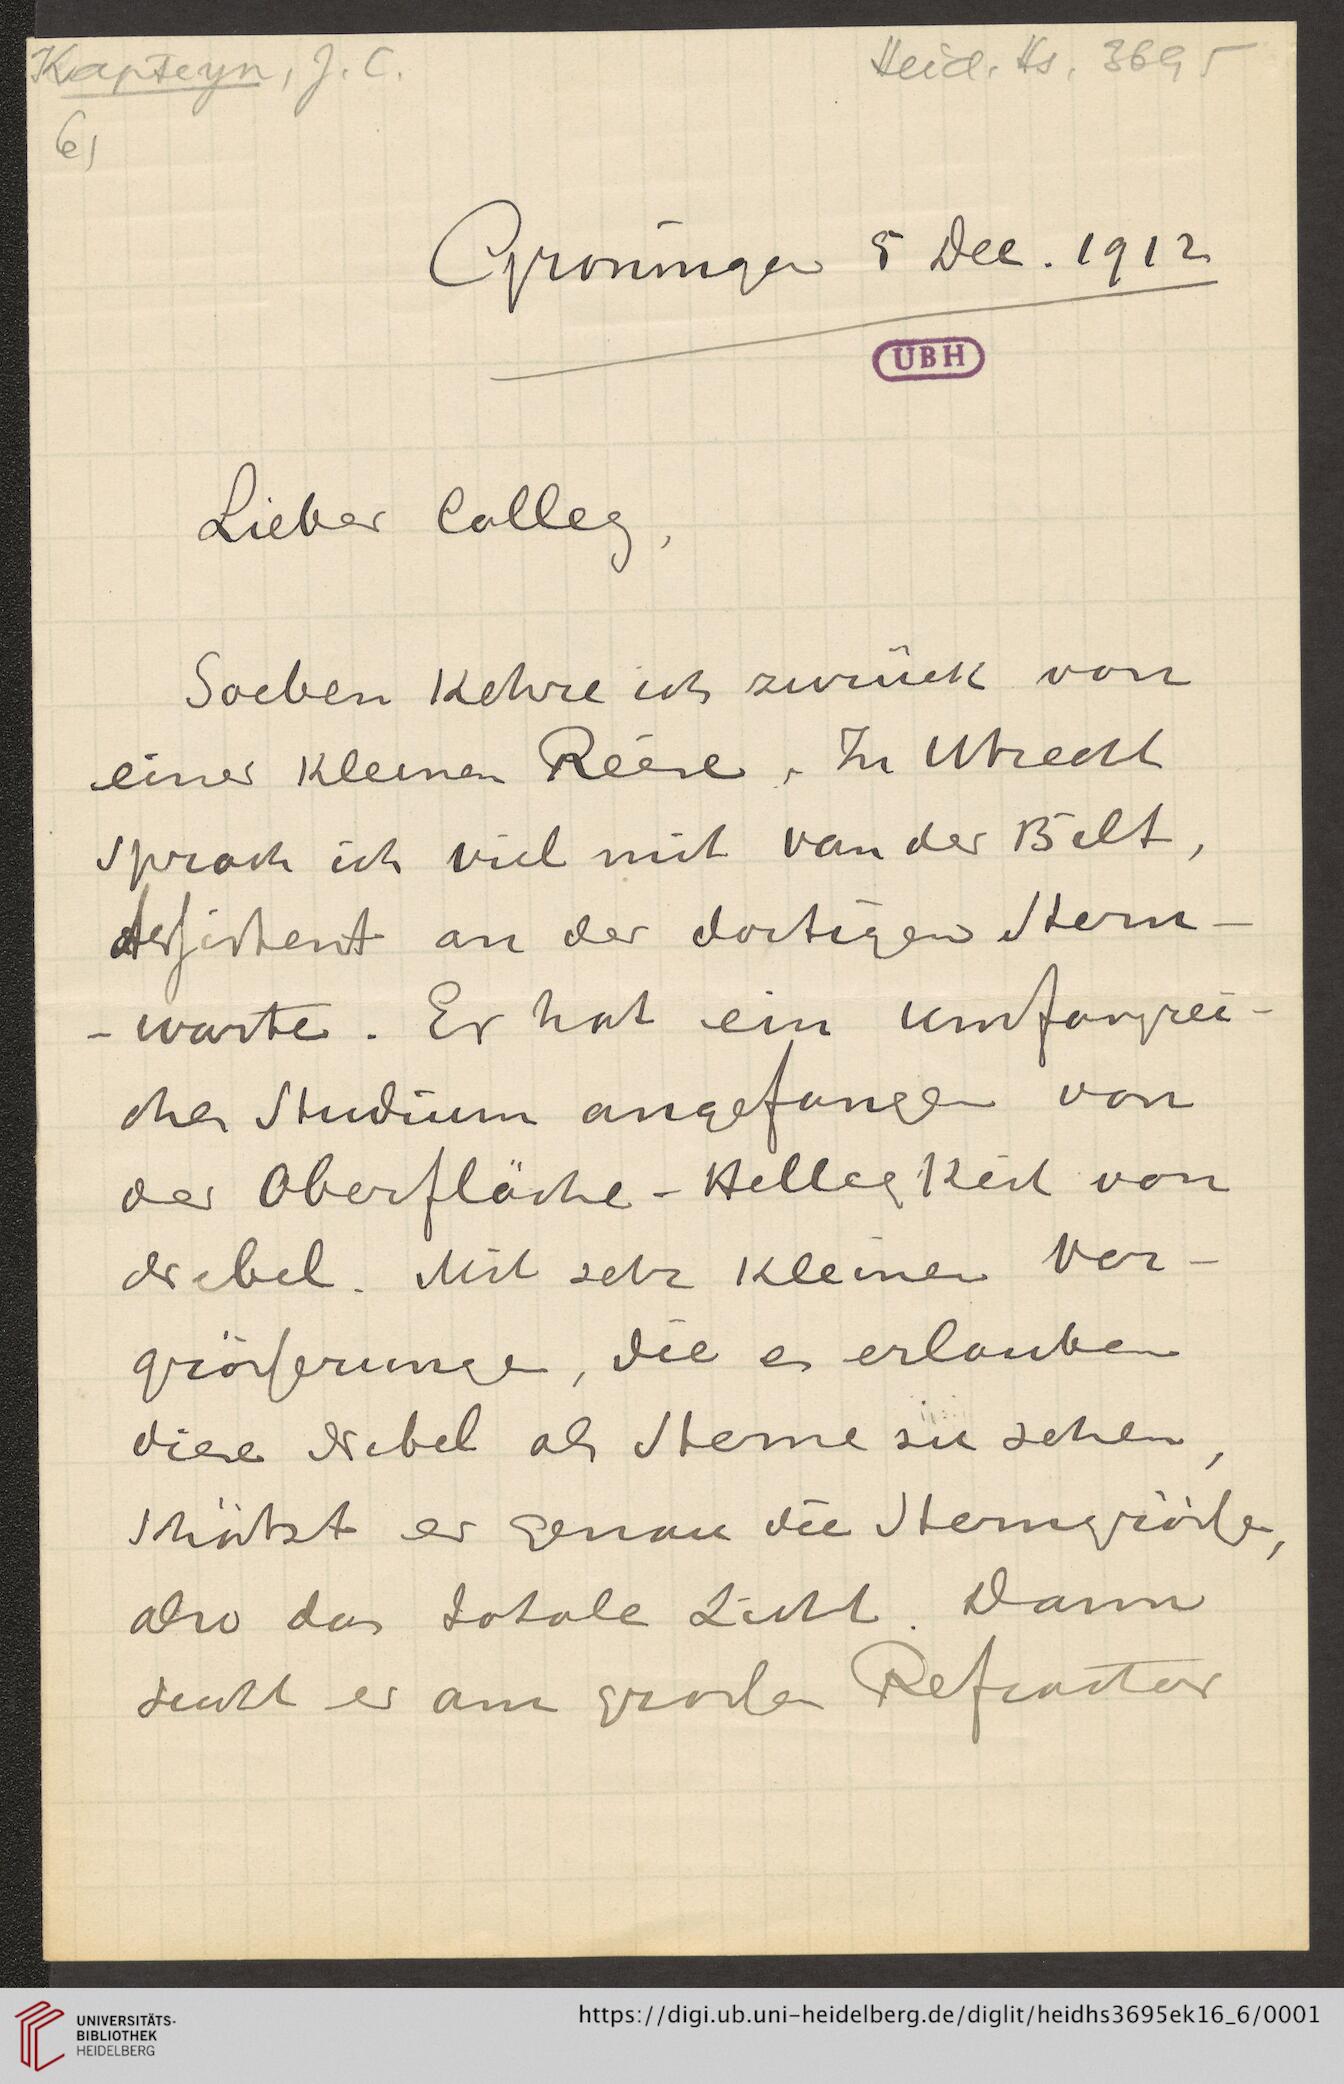 Kapteyn, J. C.
Heid. Hs. 3695
6)
Groningen 5 Dec. 1912
UBH
Lieber Colleg,
Soeben kehre ich zurück von
einer kleinen Reise. In Utrecht
sprach ich viel mit van der Bilt,
Assistent an der dortigen Stern-
-warte. Er hat ein umfangrei-
ches Studium angefangen von
der Oberfläche-Helligkeit von
Nebel. Mit sehr kleinen Ver-
größerungen, die es erlauben
diese Nebel als Sterne zu sehen,
schätzt er genau die Sterngröße,
also das totale Licht. Dann
sucht er am großen Refractor
UNIVERSITÄTS-
BIBLIOTHEK
HEIDELBERG
https://digi.ub.uni-heidelberg.de/diglit/heidhs3695ek16_6/0001